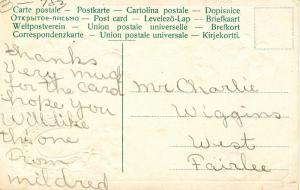 Carte postale - Postkarte - Cartolina postale - Dopisnice
Открытое-письмо - Post card - Levelező-Lap - Briefkaart
Weltpostverein - Union postale universelle - Brefkort
Correspondenzkarte - Union postale universale - Kirjekortti.
Thanks
Very much
for the card
hope you
Will like
this one
From
mildred
Mr Charlie
Wiggins
West
Fairlee